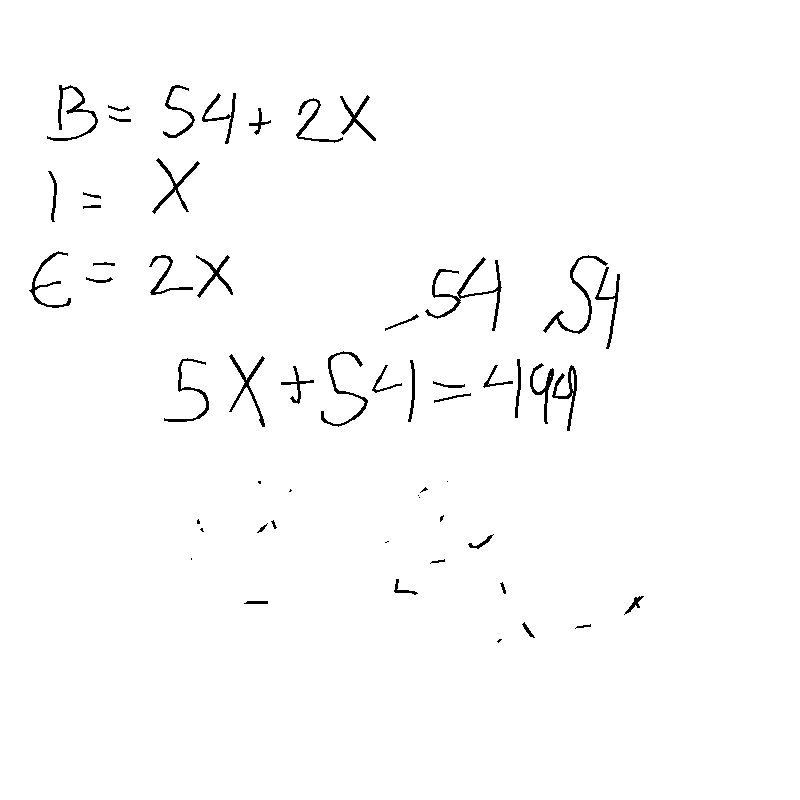 B = 54 + 2X
I = X
E = 2X
-54 -54
5X + 54 = 499